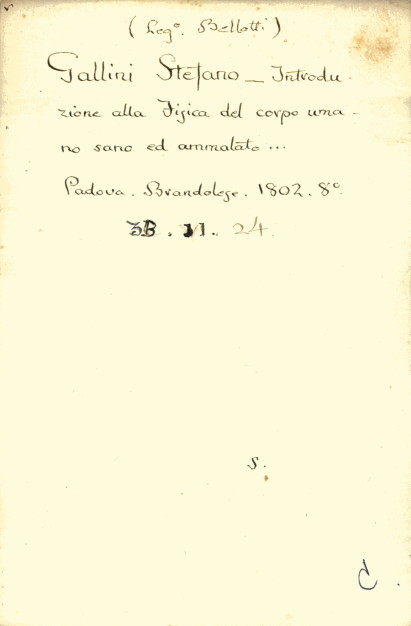 (Legº. Bellotti)
Gallini Stefano — Introdu-
zione alla Fisica del corpo uma-
no sano ed ammalato ...
Padova. Brandolese. 1802. 8º.
3B. 11. 24.
s.
C